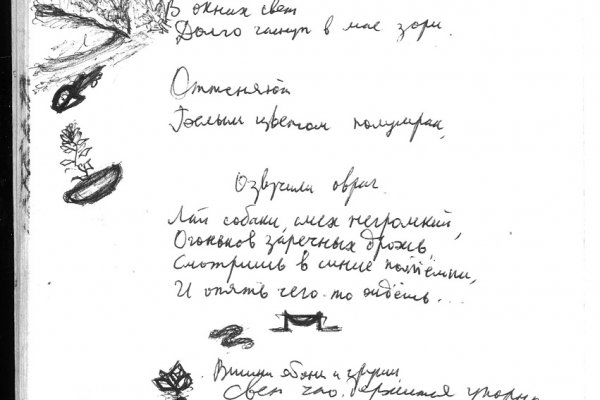 В окнах свет
Долго гаснут в мае зори.
Оттеняют
Белым цветом полумрак,
Озвучили овраг
Лай собаки, смех негромкий,
Огоньков заречных дрожь,
Смотришь в синие потёмки,
И опять чего-то ждёшь...
Вишни яблони и груши
Свет держится упорно